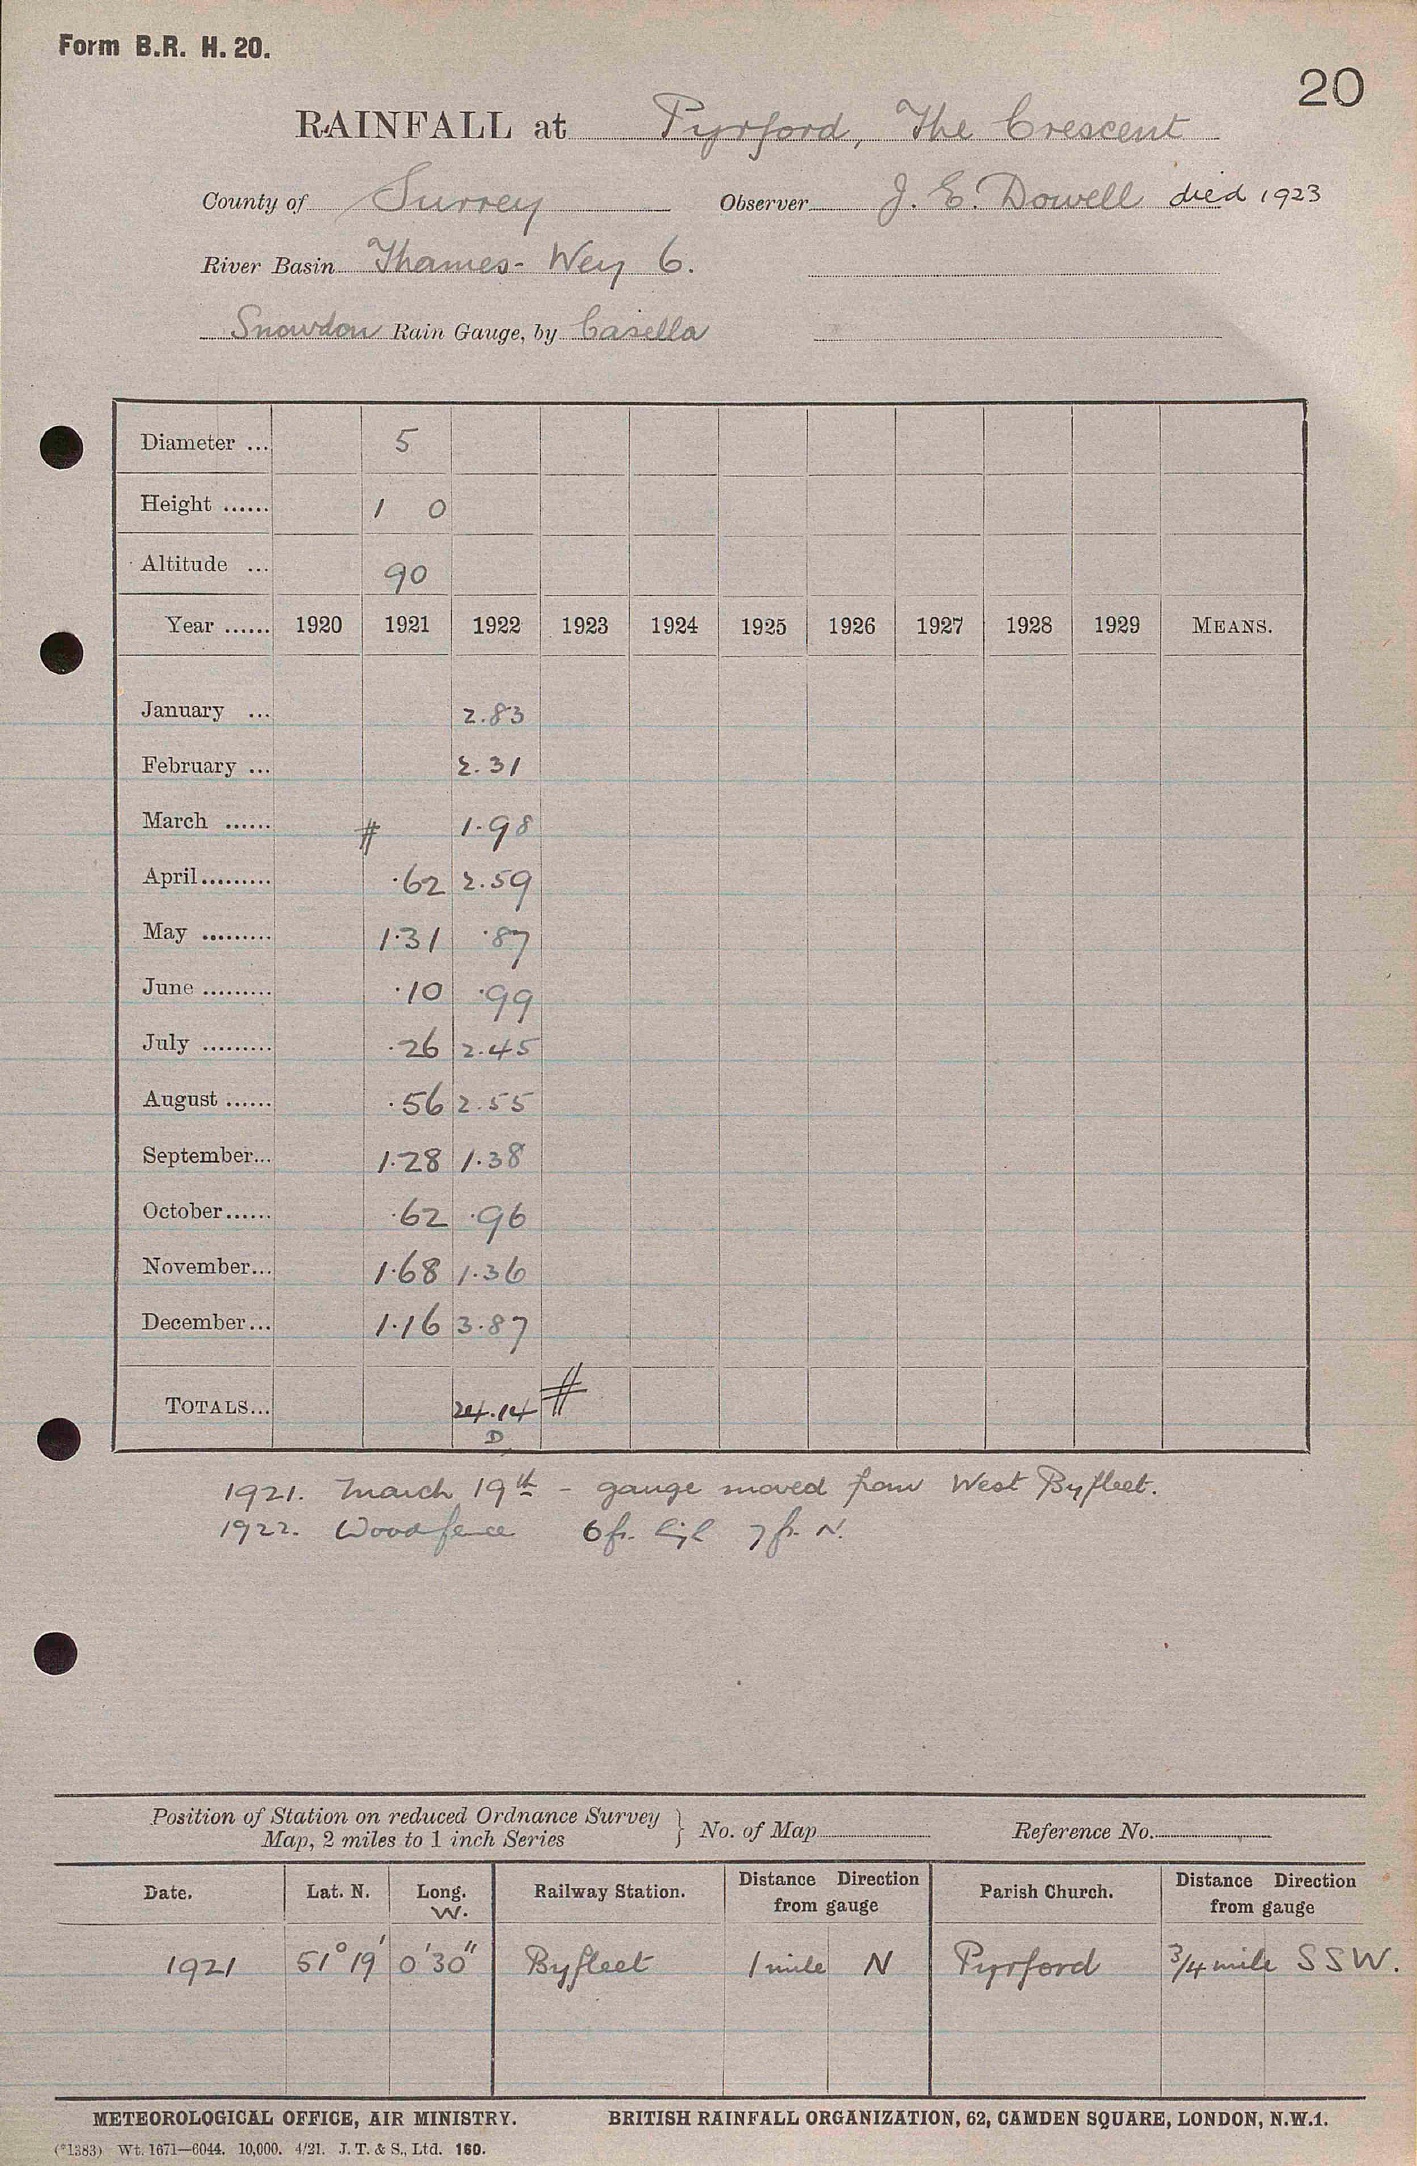 Form B.R. H. 20.
20
RAINFALL at Pyrford, The Crescent
County of Surrey Observer J. E. Dowell died 1923
River Basin Thames - Wey 6.
Snowdon Rain Gauge, by Casella
Diameter ... 5
Height ...... 1 0
Altitude ... 90
Year ...... 1920 1921 1922 1923 1924 1925 1926 1927 1928 1929 MEANS.
January ... 2.83
February ... 2.31
March ...... # 1.98
April ......... .62 2.59
May ......... 1.31 .87
June ......... .10 .99
July ......... .26 2.45
August ...... .56 2.55
September... 1.28 1.38
October ...... .62 .96
November... 1.68 1.36
December... 1.16 3.87
TOTALS... 24.14 #
D
1921. March 19th - gauge moved from West Byfleet.
1922. Wood fence 6 ft. high 7 ft. N.
Position of Station on reduced Ordnance Survey } No. of Map Reference No.
Map, 2 miles to 1 inch Series
Date. Lat. N. Long. W. Railway Station. Distance Direction from gauge Parish Church. Distance Direction from gauge
1921 51° 19' 0' 30" Byfleet 1 mile N Pyrford 3/4 mile S S W.
METEOROLOGICAL OFFICE, AIR MINISTRY. BRITISH RAINFALL ORGANIZATION, 62, CAMDEN SQUARE, LONDON, N.W.1.
(*1383) Wt. 1671—6044. 10,000. 4/21. J. T. & S., Ltd. 160.